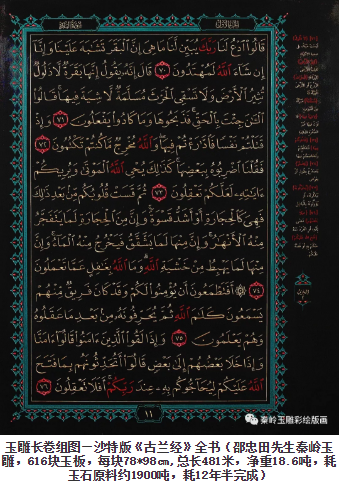 قَالُوا۟ ٱدْعُ لَنَا رَبَّكَ يُبَيِّن لَّنَا مَا هِىَ إِنَّ ٱلْبَقَرَ تَشَٰبَهَ عَلَيْنَا وَإِنَّآ
إِن شَآءَ ٱللَّهُ لَمُهْتَدُونَ ٧٠ قَالَ إِنَّهُۥ يَقُولُ إِنَّهَا بَقَرَةٌ لَّا ذَلُولٌ
تُثِيرُ ٱلْأَرْضَ وَلَا تَسْقِى ٱلْحَرْثَ مُسَلَّمَةٌ لَّا شِيَةَ فِيهَا قَالُوا۟
ٱلْـَٰٔنَ جِئْتَ بِٱلْحَقِّ فَذَبَحُوهَا وَمَا كَادُوا۟ يَفْعَلُونَ ٧١ وَإِذْ
قَتَلْتُمْ نَفْسًا فَٱدَّٰرَْٰٔتُمْ فِيهَا وَٱللَّهُ مُخْرِجٌ مَّا كُنتُمْ تَكْتُمُونَ ٧٢
فَقُلْنَا ٱضْرِبُوهُ بِبَعْضِهَا كَذَٰلِكَ يُحْىِ ٱللَّهُ ٱلْمَوْتَىٰ وَيُرِيكُمْ
ءَايَٰتِهِۦ لَعَلَّكُمْ تَعْقِلُونَ ٧٣ ثُمَّ قَسَتْ قُلُوبُكُم مِّنۢ بَعْدِ ذَٰلِكَ
فَهِىَ كَٱلْحِجَارَةِ أَوْ أَشَدُّ قَسْوَةً وَإِنَّ مِنَ ٱلْحِجَارَةِ لَمَا يَتَفَجَّرُ
مِنْهُ ٱلْأَنْهَٰرُ وَإِنَّ مِنْهَا لَمَا يَشَّقَّقُ فَيَخْرُجُ مِنْهُ ٱلْمَآءُ وَإِنَّ
مِنْهَا لَمَا يَهْبِطُ مِنْ خَشْيَةِ ٱللَّهِ وَمَا ٱللَّهُ بِغَٰفِلٍ عَمَّا تَعْمَلُونَ
٧٤ ۞ أَفَتَطْمَعُونَ أَن يُؤْمِنُوا۟ لَكُمْ وَقَدْ كَانَ فَرِيقٌ مِّنْهُمْ
يَسْمَعُونَ كَلَٰمَ ٱللَّهِ ثُمَّ يُحَرِّفُونَهُۥ مِنۢ بَعْدِ مَا عَقَلُوهُ
وَهُمْ يَعْلَمُونَ ٧٥ وَإِذَا لَقُوا۟ ٱلَّذِينَ ءَامَنُوا۟ قَالُوٓا۟ ءَامَنَّا
وَإِذَا خَلَا بَعْضُهُمْ إِلَىٰ بَعْضٍ قَالُوٓا۟ أَتُحَدِّثُونَهُم بِمَا فَتَحَ
ٱللَّهُ عَلَيْكُمْ لِيُحَآجُّوكُم بِهِۦ عِندَ رَبِّكُمْ أَفَلَا تَعْقِلُونَ ٧٦
١١
秦岭玉雕彩绘版画
玉雕长卷组图一沙特版《古兰经》全书（邵忠田先生秦岭玉
雕，616块玉板，每块78*98cm,总长481米，净重18.6吨，耗
玉石原料约1900吨，耗12年半完成）